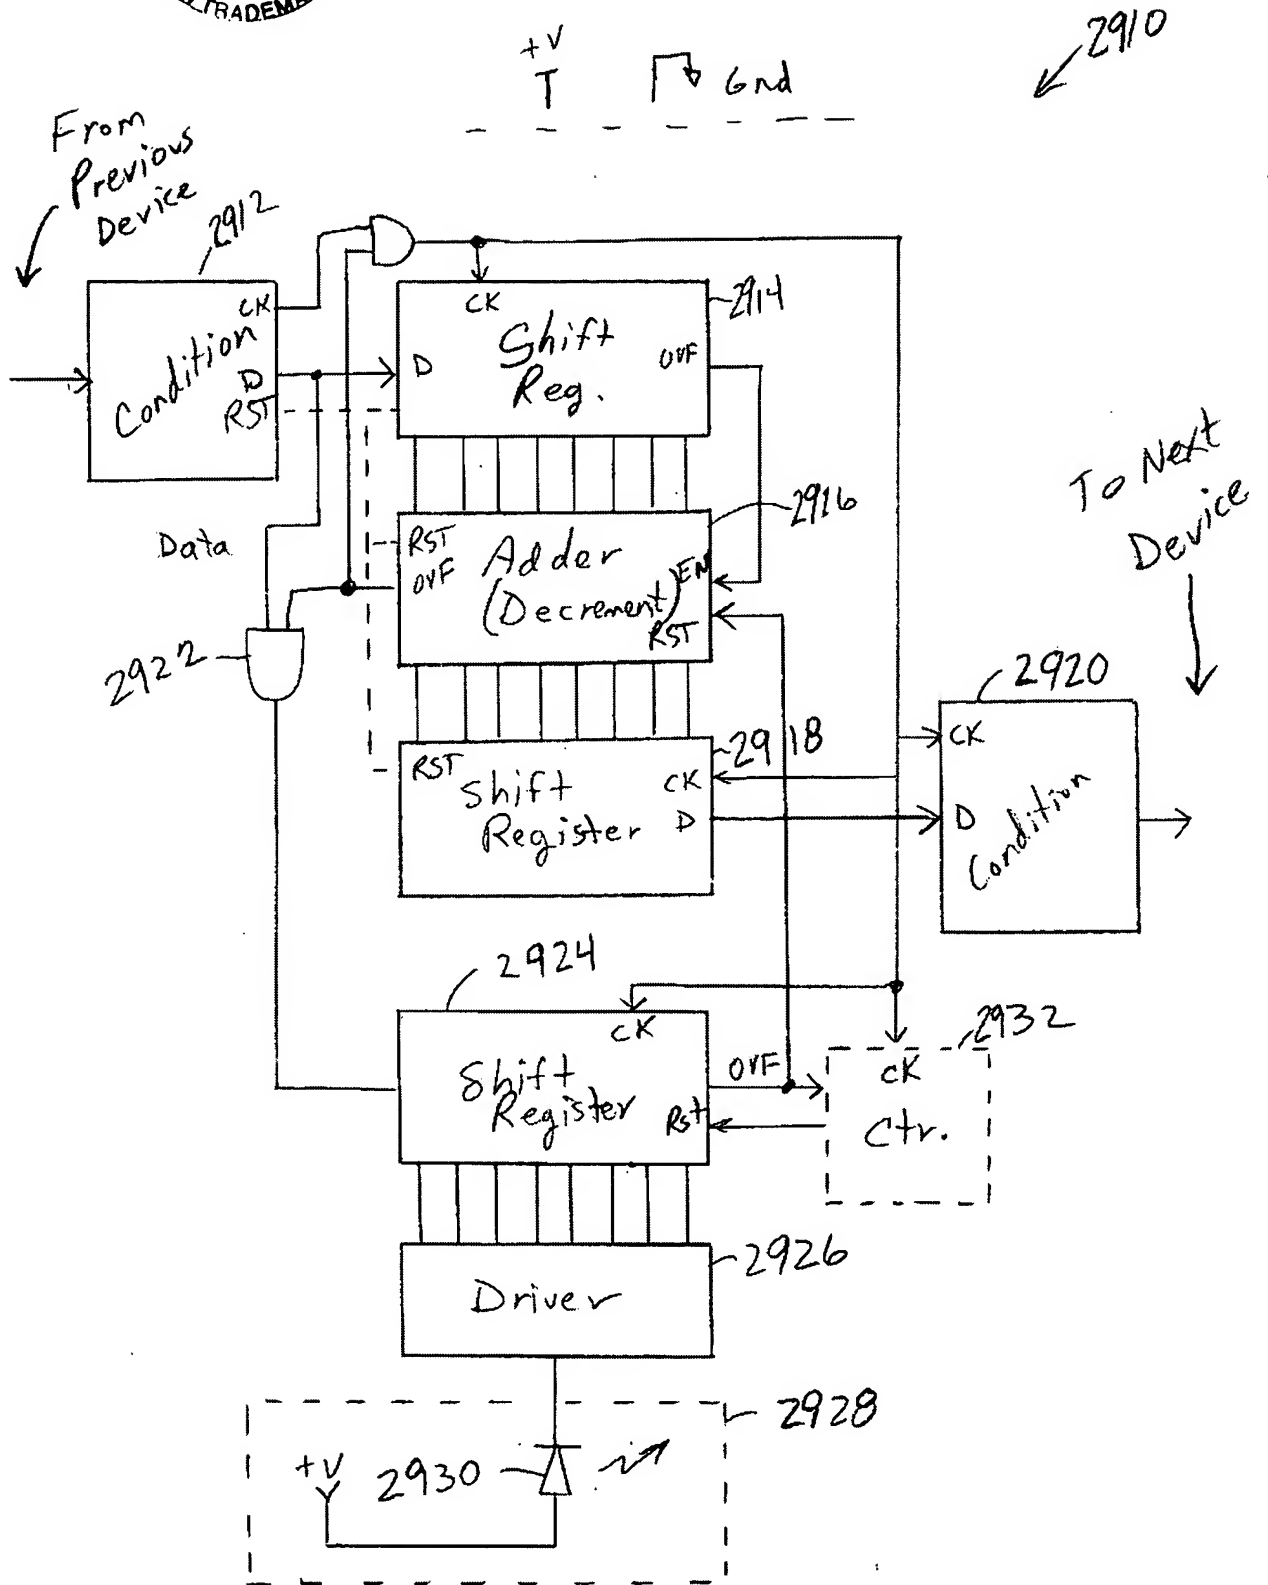 TRADEMA
+V
Gnd
2910
From
Previous
Device
2912
CK
Condition
D
RST
CK
Shift
Reg.
D
OVF
2914
Data
RST
OVF
Adder
(Decrement)
EN
RST
2916
To Next
Device
2922
RST
Shift
Register
CK
D
2918
2920
CK
D
Condition
2924
CK
Shift
Register
OVF
Rst
2932
CK
Ctr.
Driver
2926
2928
+V
2930